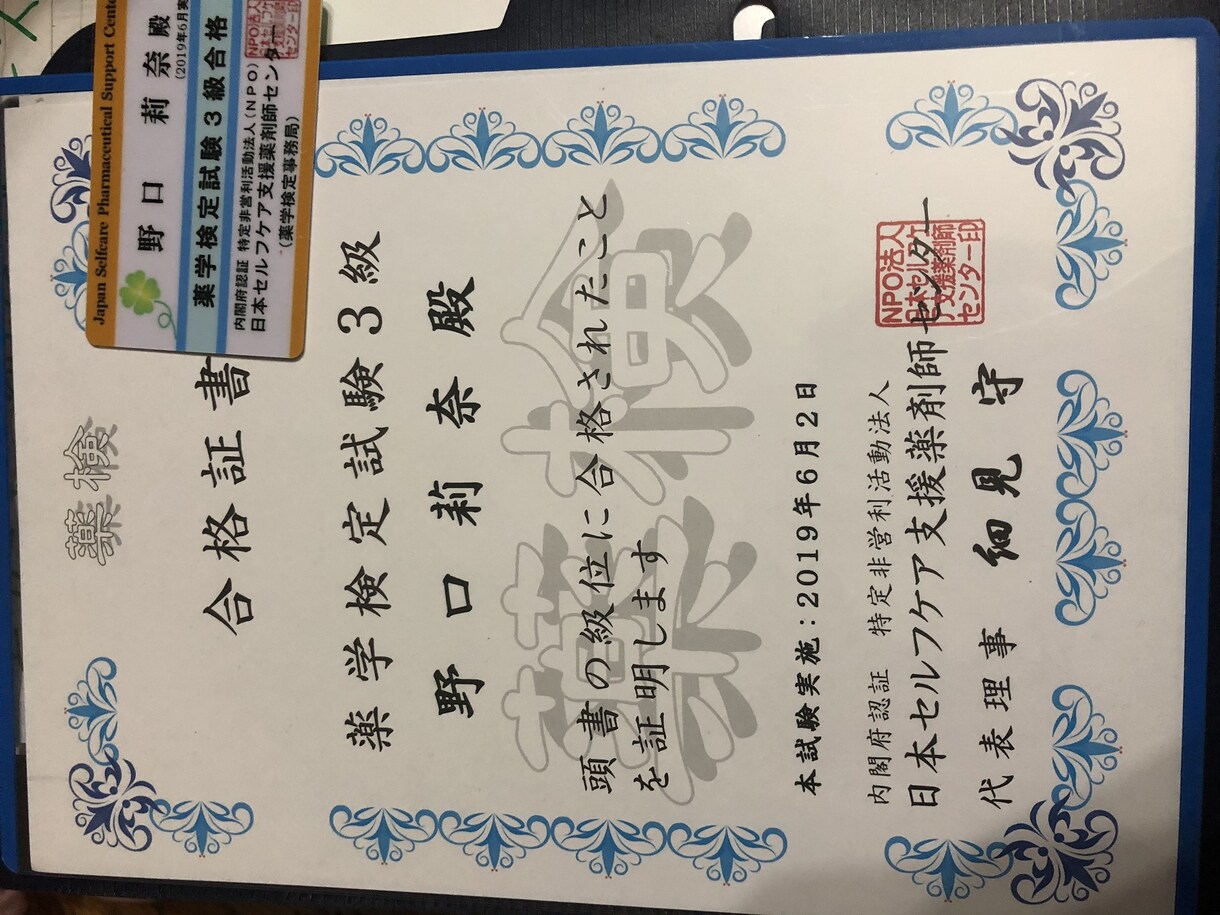 薬検
合格証書
薬学検定試験3級
野口莉奈 殿
頭書の級位に合格されたこと
を証明します
薬検
本試験実施：2019年6月2日
内閣府認証 特定非営利活動法人
日本セルフケア支援薬剤師センター
代表理事 細見 守
NPO法人
日本セルフケア
支援薬剤師
センター印
Japan Selfcare Pharmaceutical Support Cente
野口 莉奈 殿
(2019年6月実
薬学検定試験3級合格
内閣府認証 特定非営利活動法人(NPO)
日本セルフケア支援薬剤師センター
(薬学検定事務局)
NPO法人